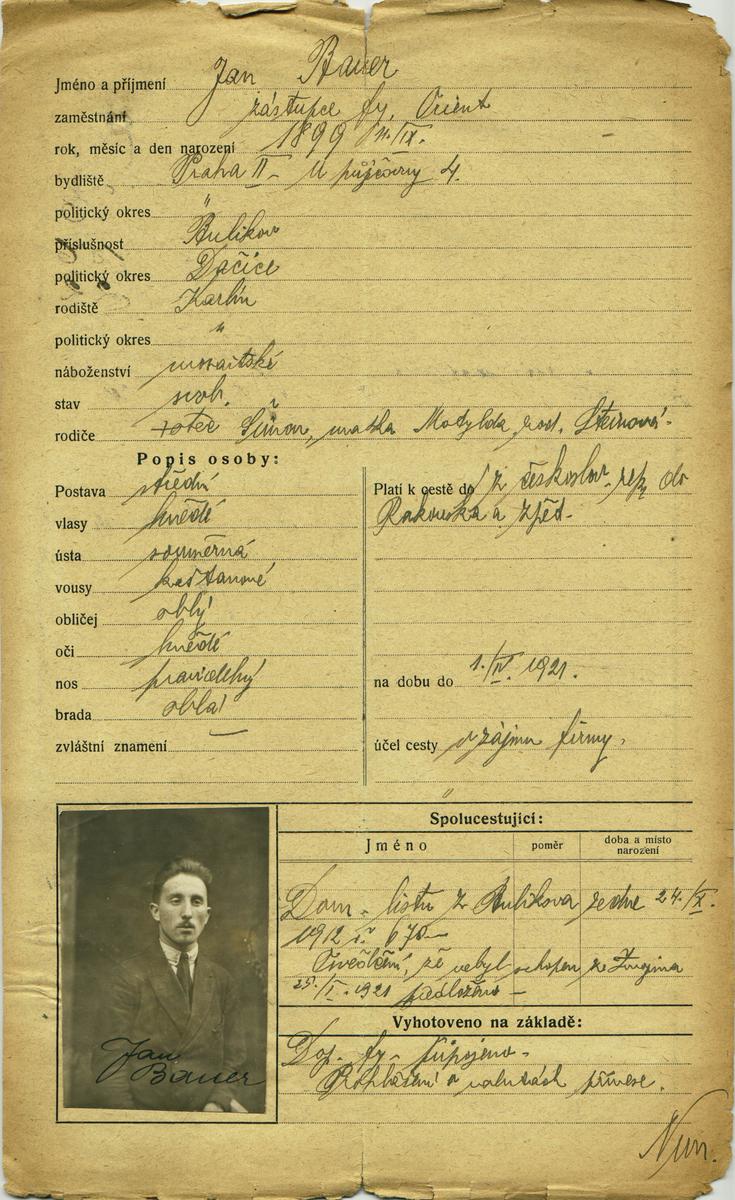 Jméno a příjmení Jan Bauer
zaměstnání zástupce fy. Orient
rok, měsíc a den narození 1899 /IX.
bydliště Praha II - U půjčovny 4.
politický okres "
příslušnost Bulikov
politický okres Dačice
rodiště Karlín
politický okres "
náboženství mosaitské
stav svob.
rodiče otec Šimon, matka Motylda, roz. Steinová.
Popis osoby:
Postava střední
vlasy hnědé
ústa souměrná
vousy kaštanové
obličej oblý
oči hnědé
nos pravidelný
brada oblá
zvláštní znamení —
Platí k cestě do z českoslov. rep. do
Rakouska a zpět.
na dobu do 1./IV. 1921.
účel cesty v zájmu firmy.
Spolucestující:
Jméno poměr doba a místo narození
Dom. listu z Bulikova ze dne 24./X.
1912 č. 670
že nebyl schopen
25./I. 1921 předloženo —
Vyhotoveno na základě:
Dop. fy. připojeno -
Prohlášení o valutách přinese.
Jan
Bauer